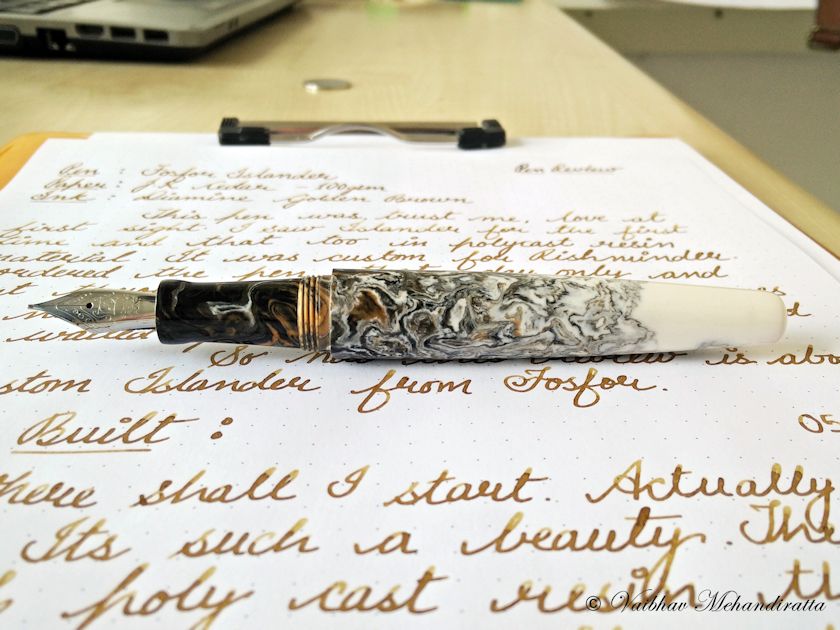 Pen : Fosfor Islander
Pen Review
Paper : J.K Cedar - 100gsm
Ink : Diamine Golden Brown
This pen was trust me, love at
first sight. I saw Islander for the first
time and that too in polycast resin
material. It was custom for Rishminder.
ordered the pen only and
So review is abo
stom Islander from Fosfor.
05
Built :
here shall I start. Actually
Its such a beauty. The
poly cast resin th
© Vaibhav Mehandiratta